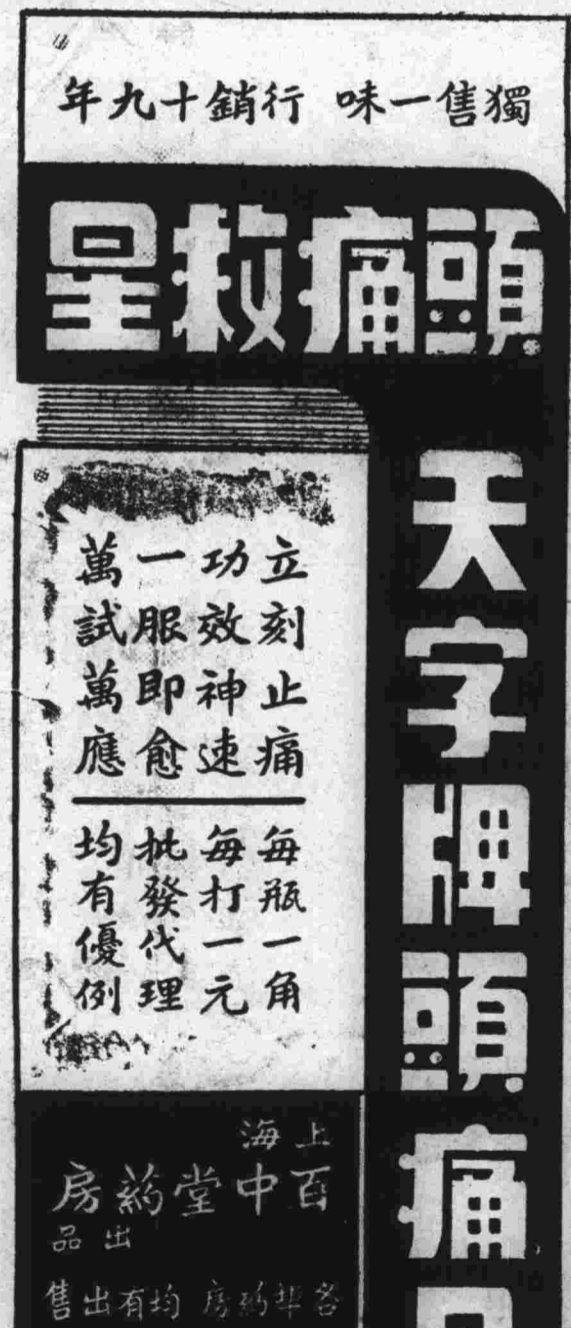 獨售一味 行銷十九年
頭痛救星
天字牌頭痛
立刻止痛
功效神速
一服即愈
萬試萬應
每瓶一角
每打一元
批發代理
均有優例
上海
百中堂葯房
出品
各埠葯房 均有出售